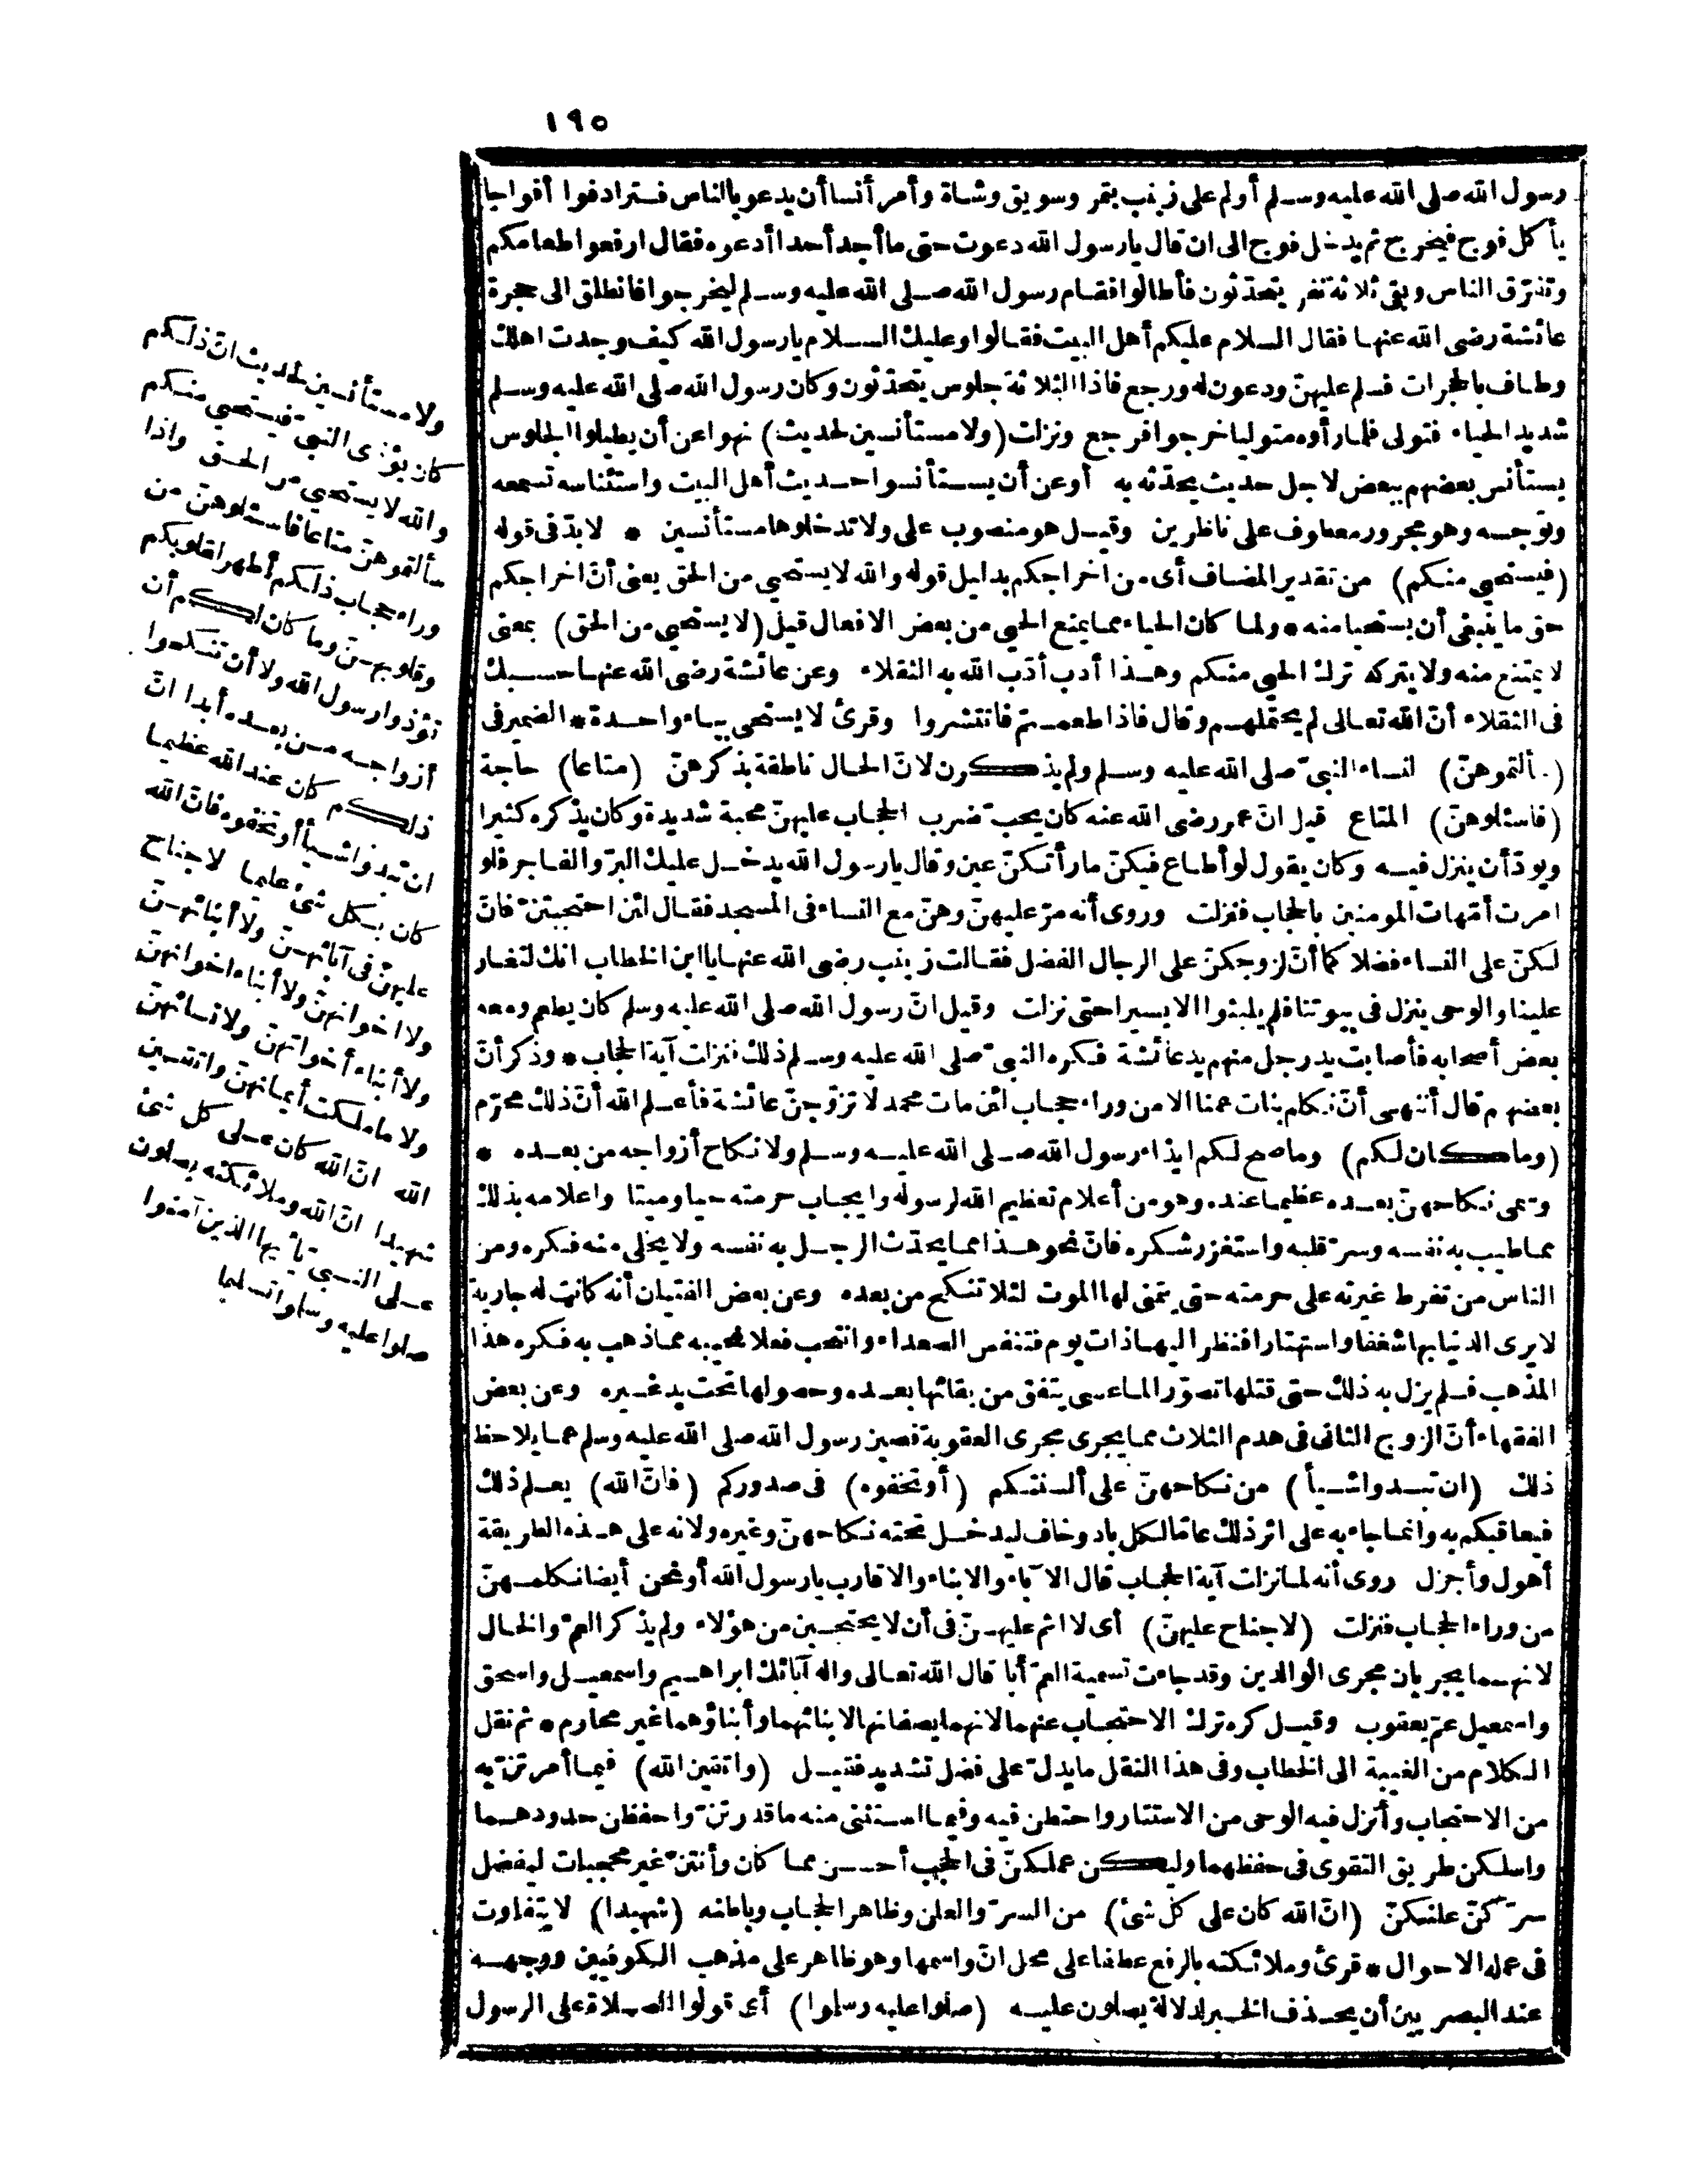 ١٩٥
رسول الله صلى الله عليه وسلم أولم على زينب بتمر وسويق وشاة وأمر أنسا أن يدعو بالناس فترادفوا أفواجا
يأكل فوج فيخرج ثم يدخل فوج الى ان قال يا رسول الله دعوت حتى ما أجد أحدا أدعوه فقال ارفعوا طعامكم
وتفرّق الناس وبقى ثلاثة نفر يتحدّثون فأطالوا فقام رسول الله صلى الله عليه وسلم ليخرجوا فانطلق الى حجرة
عائشة رضى الله عنها فقال السلام عليكم أهل البيت فقالوا وعليك السلام يا رسول الله كيف وجدت اهلك
وطاف بالحجرات فسلم عليهنّ ودعون له ورجع فاذا الثلاثة جلوس يتحدّثون وكان رسول الله صلى الله عليه وسلم
شديد الحياء فتولى فلما رأوه متوليا خرجوا فرجع ونزلت (ولا مستأنسين لحديث) نهوا عن أن يطيلوا الجلوس
يستأنس بعضهم ببعض لاجل حديث يحدّثه به أو عن أن يستأنسوا حديث أهل البيت واستئناسه تسمعه
وتوجسه وهو مجرور معطوف على ناظرين وقيل هو منصوب على ولا تدخلوها مستأنسين * لابدّ فى قوله
(فيستحيى منكم) من تقدير المضاف أى من اخراجكم بدليل قوله والله لا يستحيى من الحق يعنى أنّ اخراجكم
حق ما ينبغى أن يستحيا منه * ولما كان الحياء مما يمنع الحيى من بعض الافعال قيل (لا يستحيى من الحق) بمعنى
لا يمتنع منه ولا يتركه ترك الحيى منكم وهذا أدب أدّب الله به الثقلاء وعن عائشة رضى الله عنها حسبك
فى الثقلاء أنّ الله تعالى لم يحتملهم وقال فاذا طعمتم فانتشروا وقرئ لا يستحى بياء واحدة * الضمير فى
(سألتموهنّ) لنساء النبىّ صلى الله عليه وسلم ولم يذكرن لانّ الحال ناطقة بذكرهنّ (متاعا) حاجة
(فاسئلوهنّ) المتاع قيل انّ عمر رضى الله عنه كان يحبّ ضرب الحجاب عليهنّ محبة شديدة وكان يذكره كثيرا
ويودّ أن ينزل فيه وكان يقول لو أطاع فيكنّ ما رأتكنّ عين وقال يا رسول الله يدخل عليك البرّ والفاجر فلو
امرت أمّهات المومنين بالحجاب فنزلت وروى أنه مرّ عليهنّ وهنّ مع النساء فى المسجد فقال لئن احتجبتنّ فانّ
لكنّ على النساء فضلا كما أنّ لزوجكنّ على الرجال الفضل فقالت زينب رضى الله عنها يا ابن الخطاب انك لتغار
علينا والوحى ينزل فى بيوتنا فلم يلبثوا الا يسيرا حتى نزلت وقيل انّ رسول الله صلى الله عليه وسلم كان يطعم ومعه
بعض أصحابه فأصابت يد رجل منهم يد عائشة فكره النبىّ صلى الله عليه وسلم ذلك فنزلت آية الحجاب * وذكر أنّ
بعضهم قال أننهى أن نكلم بنات عمنا الا من وراء حجاب لئن مات محمد لاتزوّجنّ عائشة فأعلم الله أنّ ذلك محرّم
(وما كان لكم) وما صح لكم ايذاء رسول الله صلى الله عليه وسلم ولا نكاح أزواجه من بعده *
وسمى نكاحهنّ بعده عظيما عنده وهو من أعلام تعظيم الله لرسوله وايجاب حرمته حيا وميتا واعلامه بذلك
مما طيب به نفسه وسرّ قلبه واستغزر شكره فانّ نحو هذا مما يحدّث الرجل به نفسه ولا يخلى منه فكره ومن
الناس من تفرط غيرته على حرمته حتى يتمنى لها الموت لئلا تنكح من بعده وعن بعض الفتيان أنه كانت له جارية
لا يرى الدنيا بها شغفا واستهتارا فنظر اليها ذات يوم فتنفس الصعداء وانتحب فعلا نحيبه مما ذهب به فكره هذا
المذهب فلم يزل به ذلك حتى قتلها تصوّرا لما عسى يتفق من بقائها بعده وحصولها تحت يد غيره وعن بعض
الفقهاء أنّ الزوج الثانى فى هدم الثلاث مما يجرى مجرى العقوبة فصين رسول الله صلى الله عليه وسلم عما يلاحظ
ذلك (ان تبدوا شيأ) من نكاحهنّ على ألسنتكم (أو تخفوه) فى صدوركم (فانّ الله) يعلم ذلك
فيعاقبكم به وانما جاء به على اثر ذلك عامّا لكل باد وخاف ليدخل تحته نكاحهنّ وغيره ولانه على هذه الطريقة
أهول وأجزل روى أنه لما نزلت آية الحجاب قال الآباء والابناء والاقارب يا رسول الله أو نحن أيضا نكلمهنّ
من وراء الحجاب فنزلت (لا جناح عليهنّ) أى لا اثم عليهنّ فى أن لا يحتجبن من هؤلاء ولم يذكر العمّ والخال
لانهما يجريان مجرى الوالدين وقد جاءت تسمية العمّ أبا قال الله تعالى واله آبائك ابراهيم واسمعيل واسحق
واسمعيل عمّ يعقوب وقيل كره ترك الاحتجاب عنهما لانهما يصفانها لابنائهما وأبناؤهما غير محارم * ثم نقل
الكلام من الغيبة الى الخطاب وفى هذا النقل ما يدلّ على فضل تشديد فقيل (واتقين الله) فيما أمرتنّ به
من الاحتجاب وأنزل فيه الوحى من الاستتار واحتطن فيه وفيما استثنى منه ما قدرتنّ واحفظن حدودهما
واسلكن طريق التقوى فى حفظهما وليكن عملكنّ فى الحجب أحسن مما كان وأنتنّ غير محجبات ليفضل
سرّكنّ علنكنّ (انّ الله كان على كل شئ) من السرّ والعلن وظاهر الحجاب وباطنه (شهيدا) لا يتفاوت
فى علمه الاحوال * قرئ وملائكته بالرفع عطفا على محل انّ واسمها وهو ظاهر على مذهب الكوفيين ووجهه
عند البصريين أن يحذف الخبر لدلالة يصلون عليه (صلوا عليه وسلموا) أى قولوا الصلاة على الرسول
ولا مستأنسين لحديث انّ ذلكم
كان يؤذى النبىّ فيستحيى منكم
والله لا يستحيى من الحق واذا
سألتموهنّ متاعا فاسئلوهنّ من
وراء حجاب ذلكم أطهر لقلوبكم
وقلوبهنّ وما كان لكم أن
تؤذوا رسول الله ولا أن تنكحوا
أزواجه من بعده أبدا انّ
ذلكم كان عند الله عظيما
ان تبدوا شيأ أو تخفوه فانّ الله
كان بكل شئ عليما لا جناح
عليهنّ فى آبائهنّ ولا أبنائهنّ
ولا اخوانهنّ ولا أبناء اخوانهنّ
ولا أبناء أخواتهنّ ولا نسائهنّ
ولا ما ملكت أيمانهنّ واتقين
الله انّ الله كان على كل شئ
شهيدا انّ الله وملائكته يصلون
على النبى يا أيها الذين آمنوا
صلوا عليه وسلموا تسليما